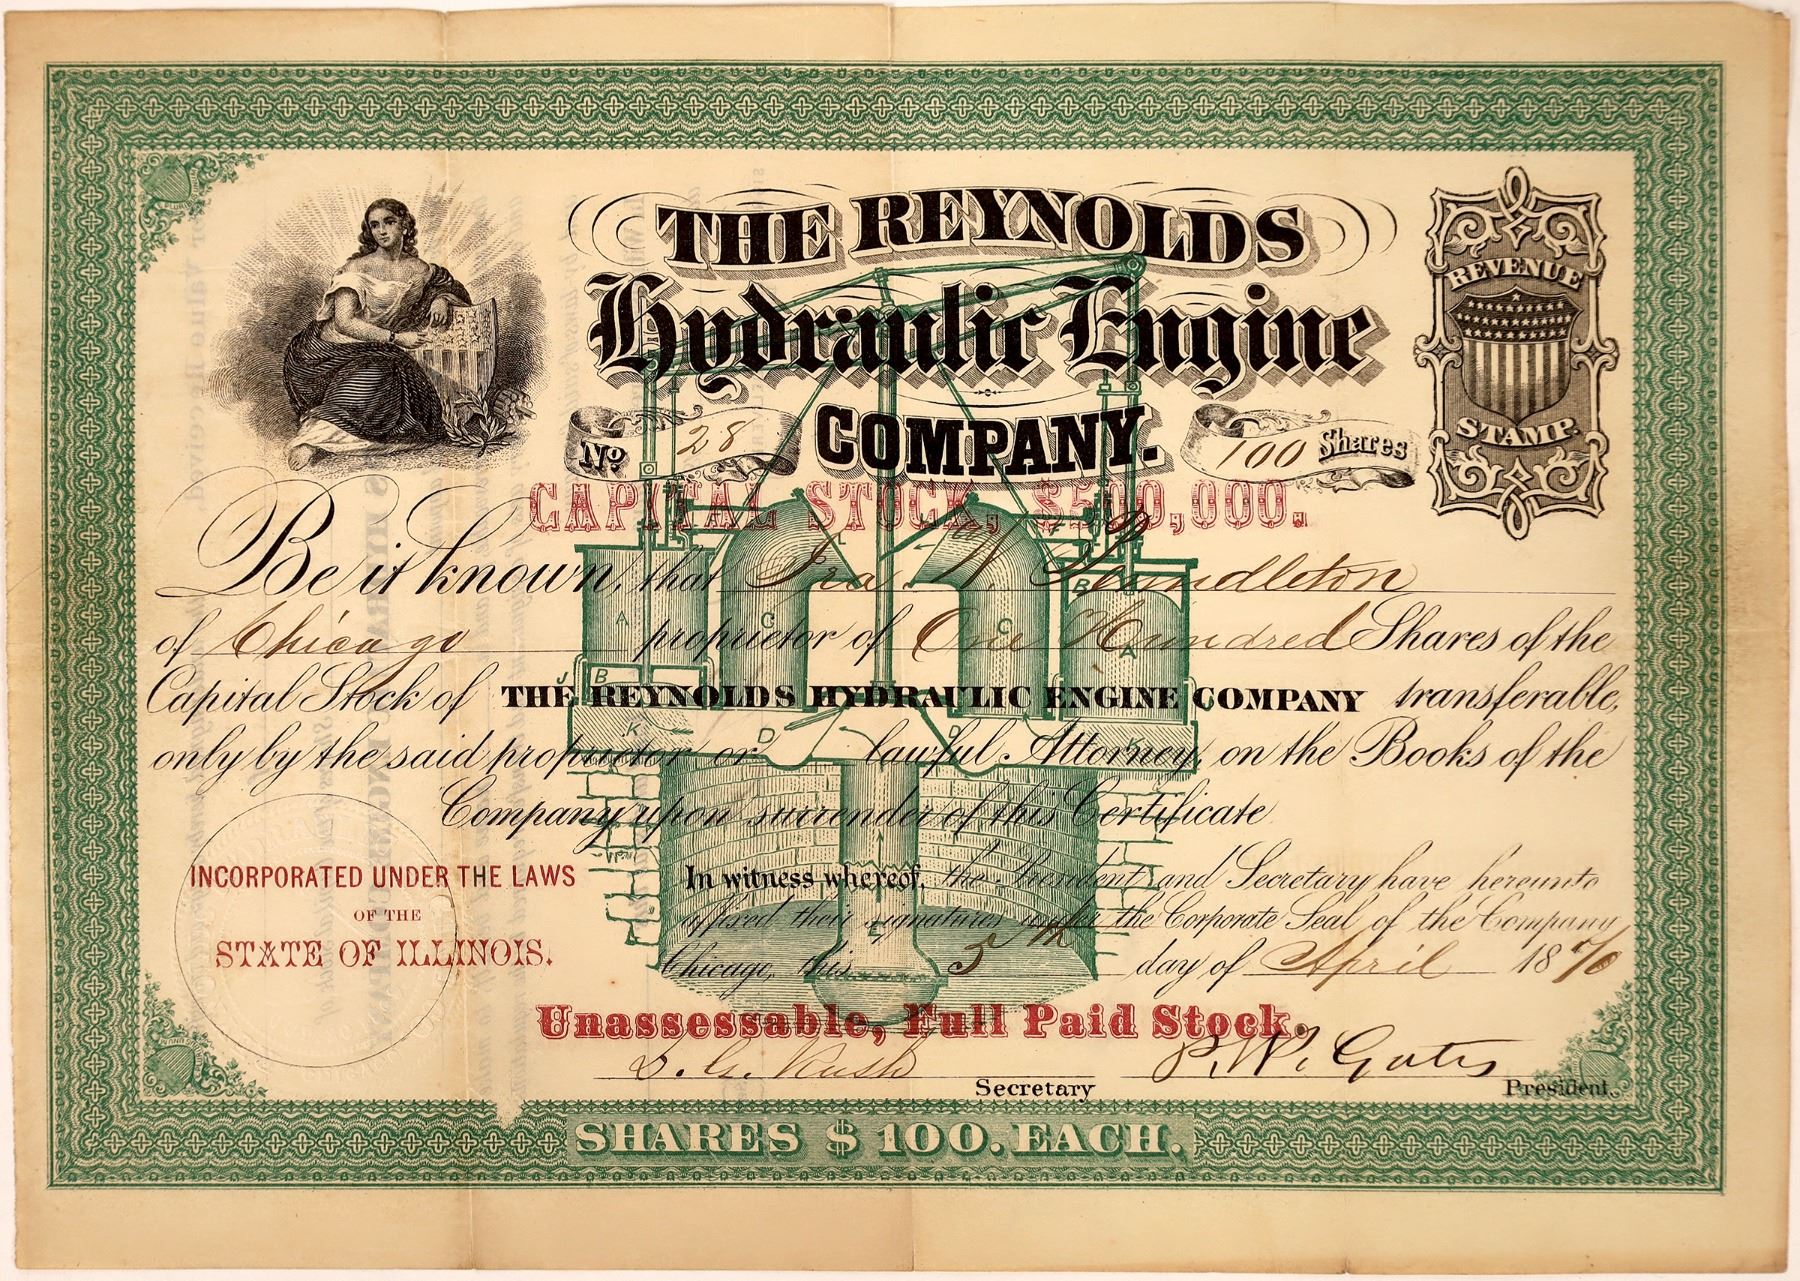 THE REYNOLDS
Hydraulic Engine
COMPANY.
REVENUE
STAMP.
No 28
100 Shares
CAPITAL STOCK, $500,000.
Be it known, that Ira W. Pendleton
of Chicago proprietor of One Hundred Shares of the
Capital Stock of THE REYNOLDS HYDRAULIC ENGINE COMPANY transferable,
only by the said proprietor or lawful Attorney, on the Books of the
Company upon surrender of this Certificate
INCORPORATED UNDER THE LAWS
OF THE
STATE OF ILLINOIS.
In witness whereof, the President and Secretary have hereunto
affixed their signatures under the Corporate Seal of the Company
Chicago, this 5th day of April 1870
Unassessable, Full Paid Stock.
Rush Secretary
P. W. Gates President.
SHARES $100. EACH.